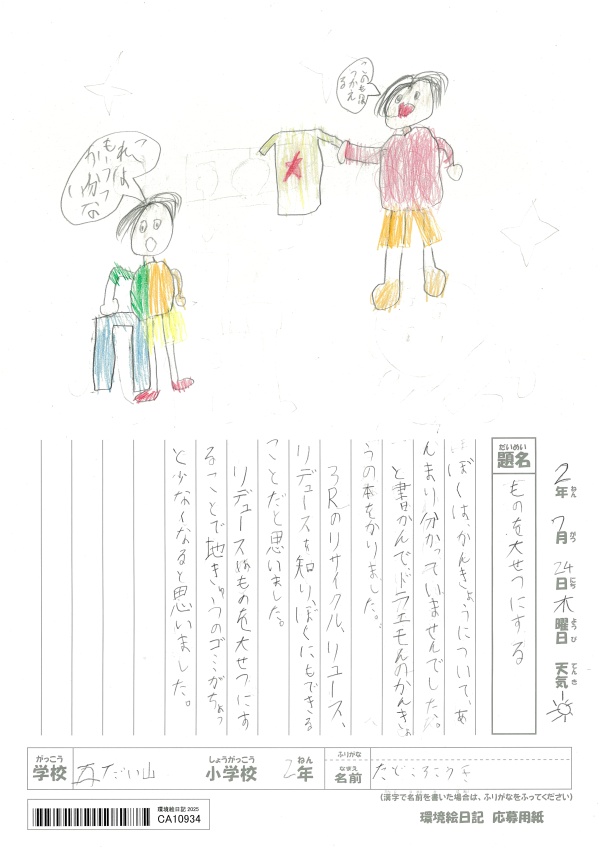 このもはつかえる
これはもういつかつかいな
2年 7月 24日 木曜日 天気
ねん がつ にち ようび てんき
だいめい
題名
ものを大せつにする
ぼくは、かんきょうについて、あ
んまり分かっていませんでした。
と書かんで、ドラエもんのかんきょ
うの本をかりました。
3Rのリサイクル、リユース、
リデュースを知り、ぼくにもできる
ことだと思いました。
リデュースはものを大せつにす
ることで地きゅうのゴミがちょっ
と少なくなると思いました。
がっこう
学校
五だい山
しょうがっこう
小学校
2年
ねん
ふりがな
なまえ
名前
たどころこうき
(漢字で名前を書いた場合は、ふりがなをふってください)
環境絵日記 2025
CA10934
環境絵日記 応募用紙